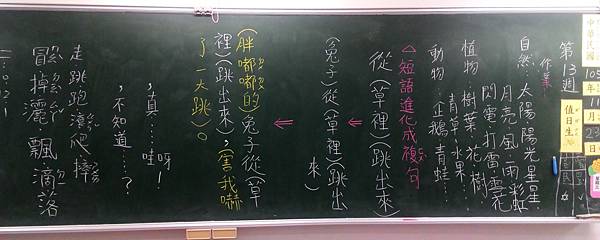 中華民國
105年
11月
23日
值日生
第13週
作業
自然:太陽 陽光 星星
月亮 風 雨 彩虹
閃電 打雷 雪花
植物:樹葉 花 樹
青草 水果…
動物:企鵝 青蛙…
△短語進化成複句
從(草裡)(跳出來)
(兔子)從(草裡)(跳出來)
(胖嘟嘟的)兔子從(草
裡)(跳出來),(害我嚇
了一大跳)。
,真…哇呀!
,不知道…?
走 跳 跑 爬 摔
冒 掉 灑 飄 滴 落